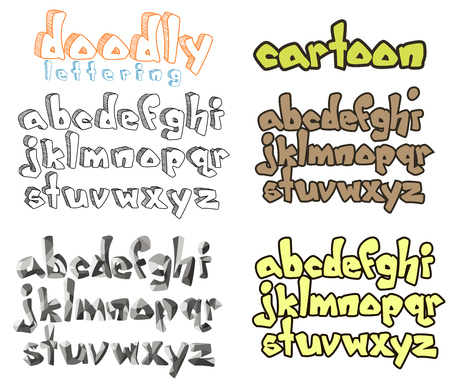 doodly
lettering
abcdefghi
jklmnopqr
stuvwxyz
abcdefghi
jklmnopqr
stuvwxyz
cartoon
abcdefghi
jklmnopqr
stuvwxyz
abcdefghi
jklmnopqr
stuvwxyz